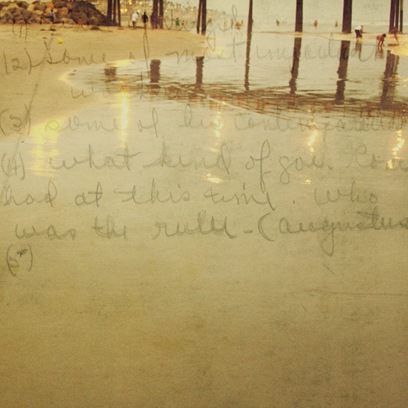 (2) Some of most important
(3) some of his contemporaries
(4) what kind of gov. Rome
had at this time. Who
was the ruler - (augustus
(5)